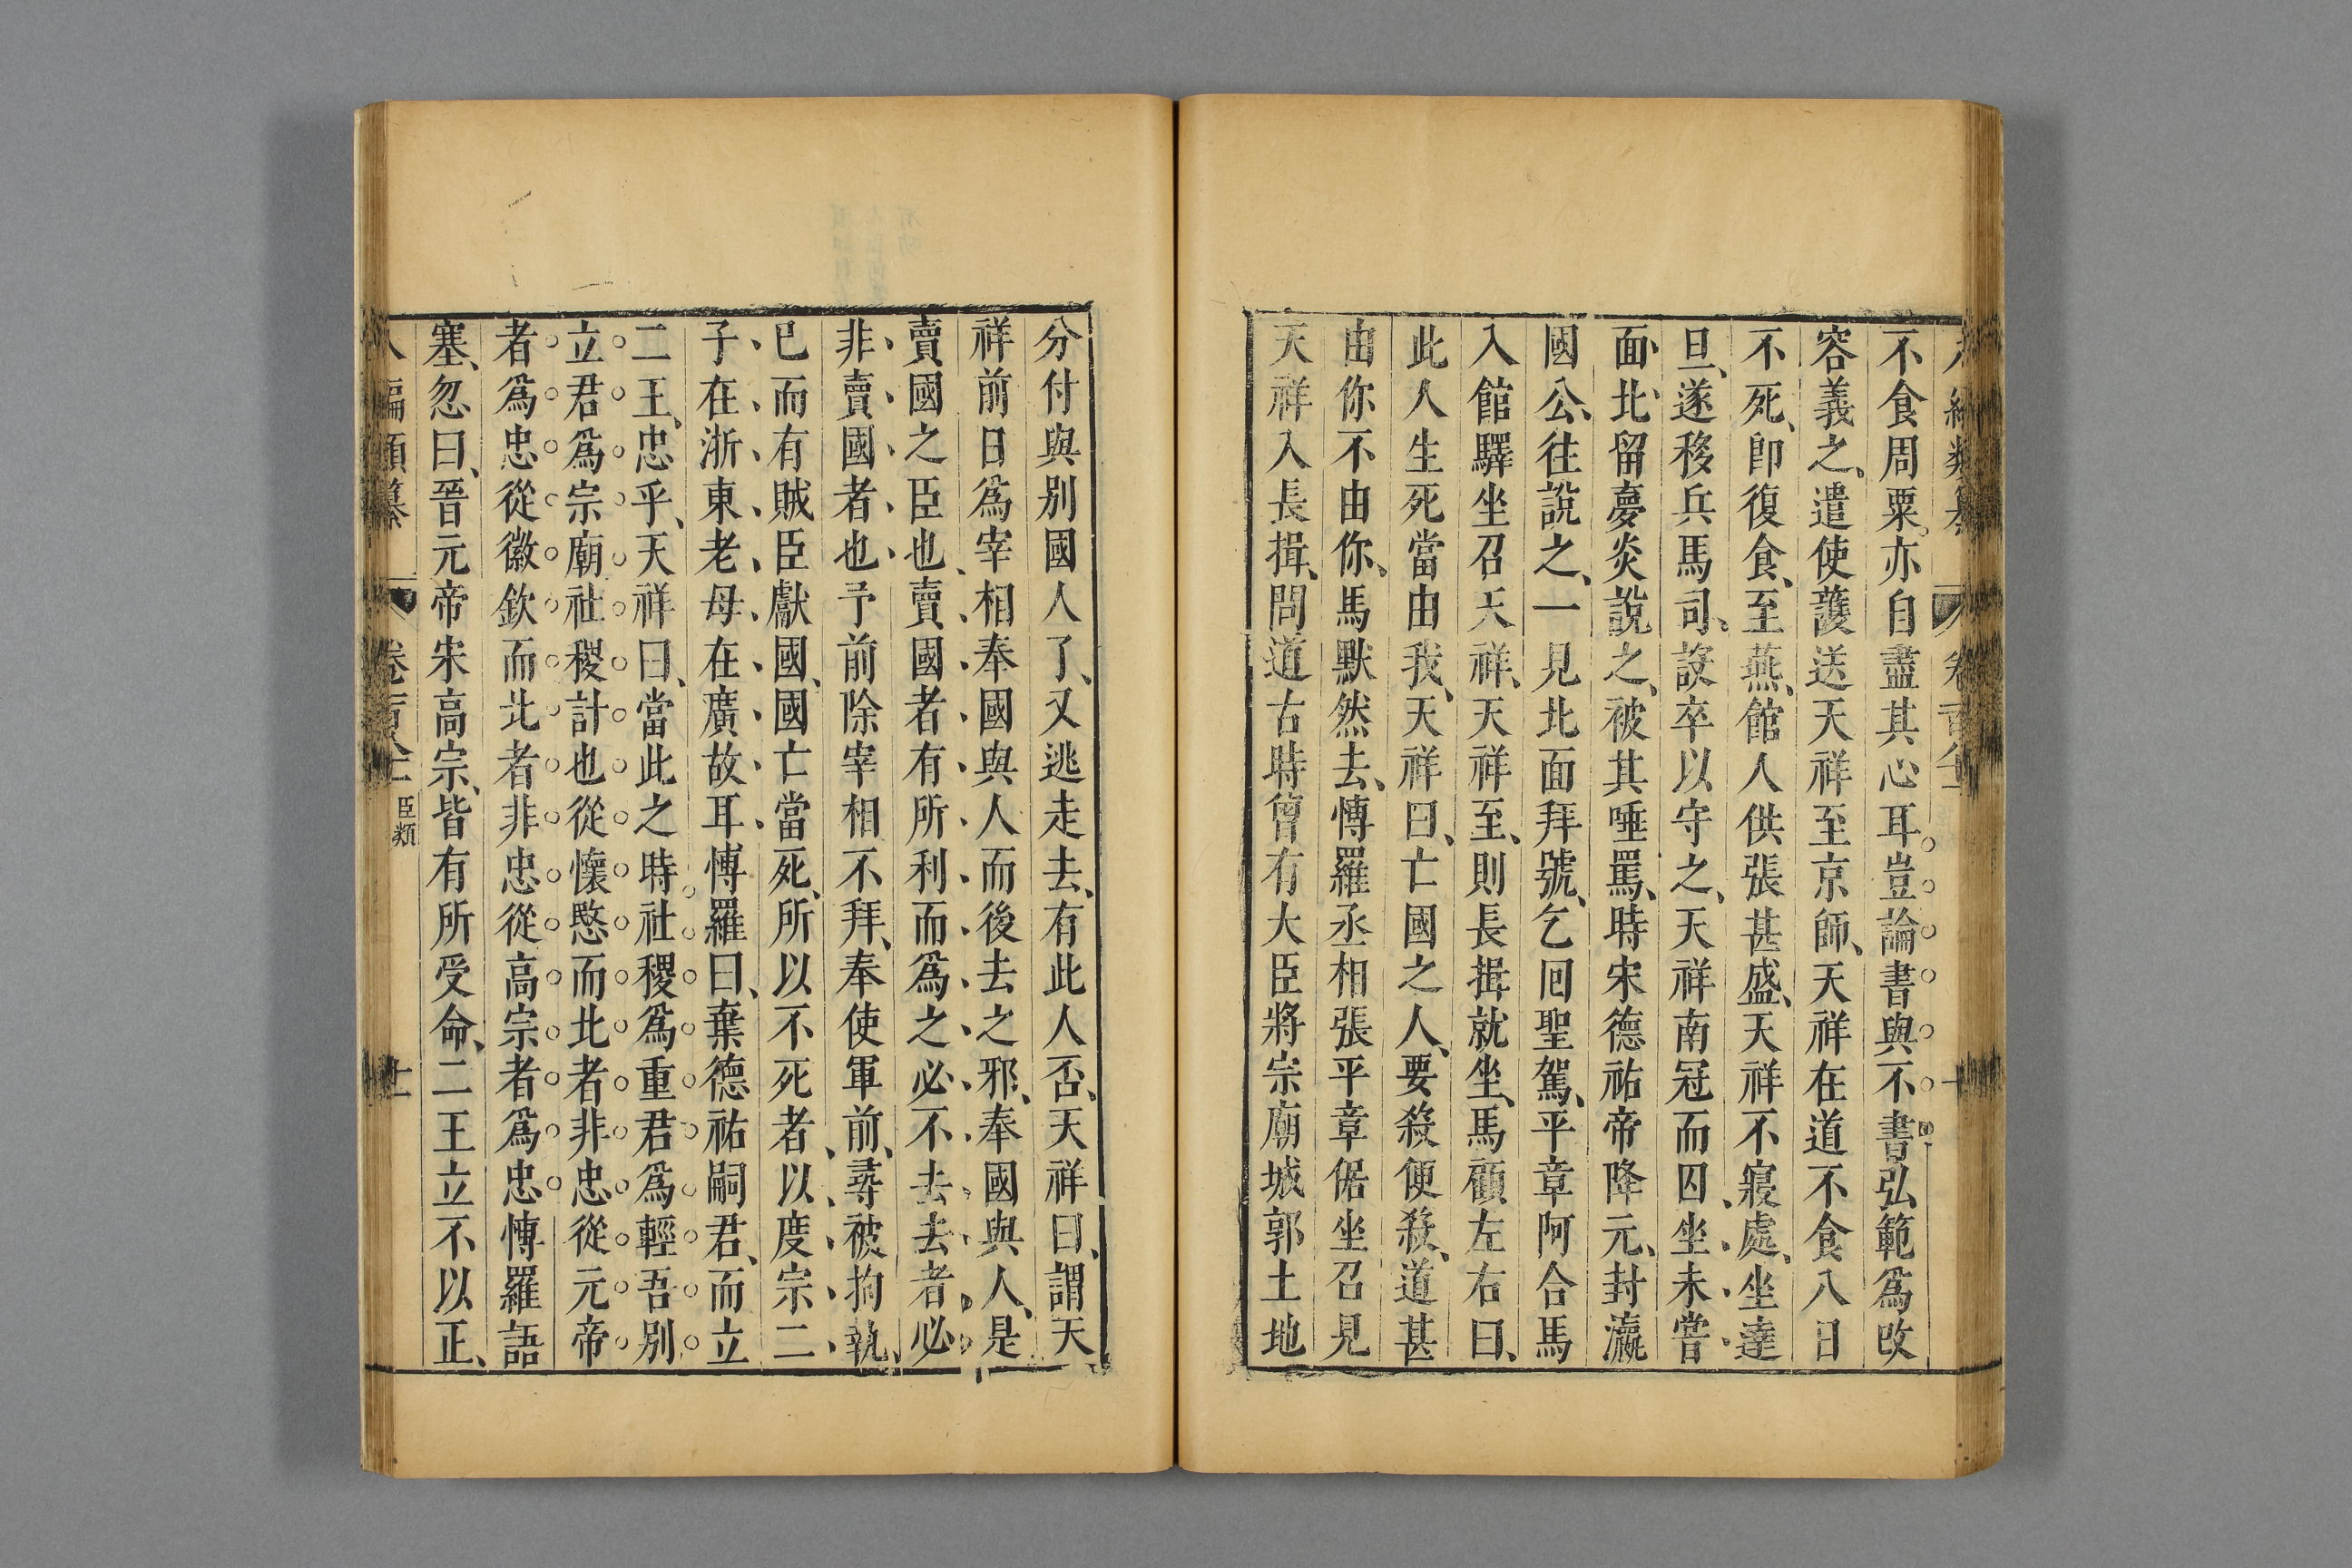 不食周粟亦自盡其心耳豈論書與不書弘範爲改
容義之遣使護送天祥至京師天祥在道不食八日
不死即復食至燕館人供張甚盛天祥不寢處坐達
旦遂移兵馬司設卒以守之天祥南冠而囚坐未嘗
面北留夢炎說之被其唾罵時宋德祐帝降元封瀛
國公往說之一見北面拜號乞回聖駕平章阿合馬
入館驛坐召天祥天祥至則長揖就坐馬顧左右曰
此人生死當由我天祥曰亡國之人要殺便殺道甚
由你不由你馬默然去愽羅丞相張平章倨坐召見
天祥入長揖問道古時曾有大臣將宗廟城郭土地
分付與別國人了又逃走去有此人否天祥曰謂天
祥前日爲宰相奉國與人而後去之邪奉國與人是
賣國之臣也賣國者有所利而爲之必不去去者必
非賣國者也予前除宰相不拜奉使軍前尋被拘執
已而有賊臣獻國國亡當死所以不死者以度宗二
子在浙東老母在廣故耳愽羅曰棄德祐嗣君而立
二王忠乎天祥曰當此之時社稷爲重君爲輕吾別
立君爲宗廟社稷計也從懷愍而北者非忠從元帝
者爲忠從徽欽而北者非忠從高宗者爲忠愽羅語
塞忽曰晉元帝宋高宗皆有所受命二王立不以正
編類纂 臣類